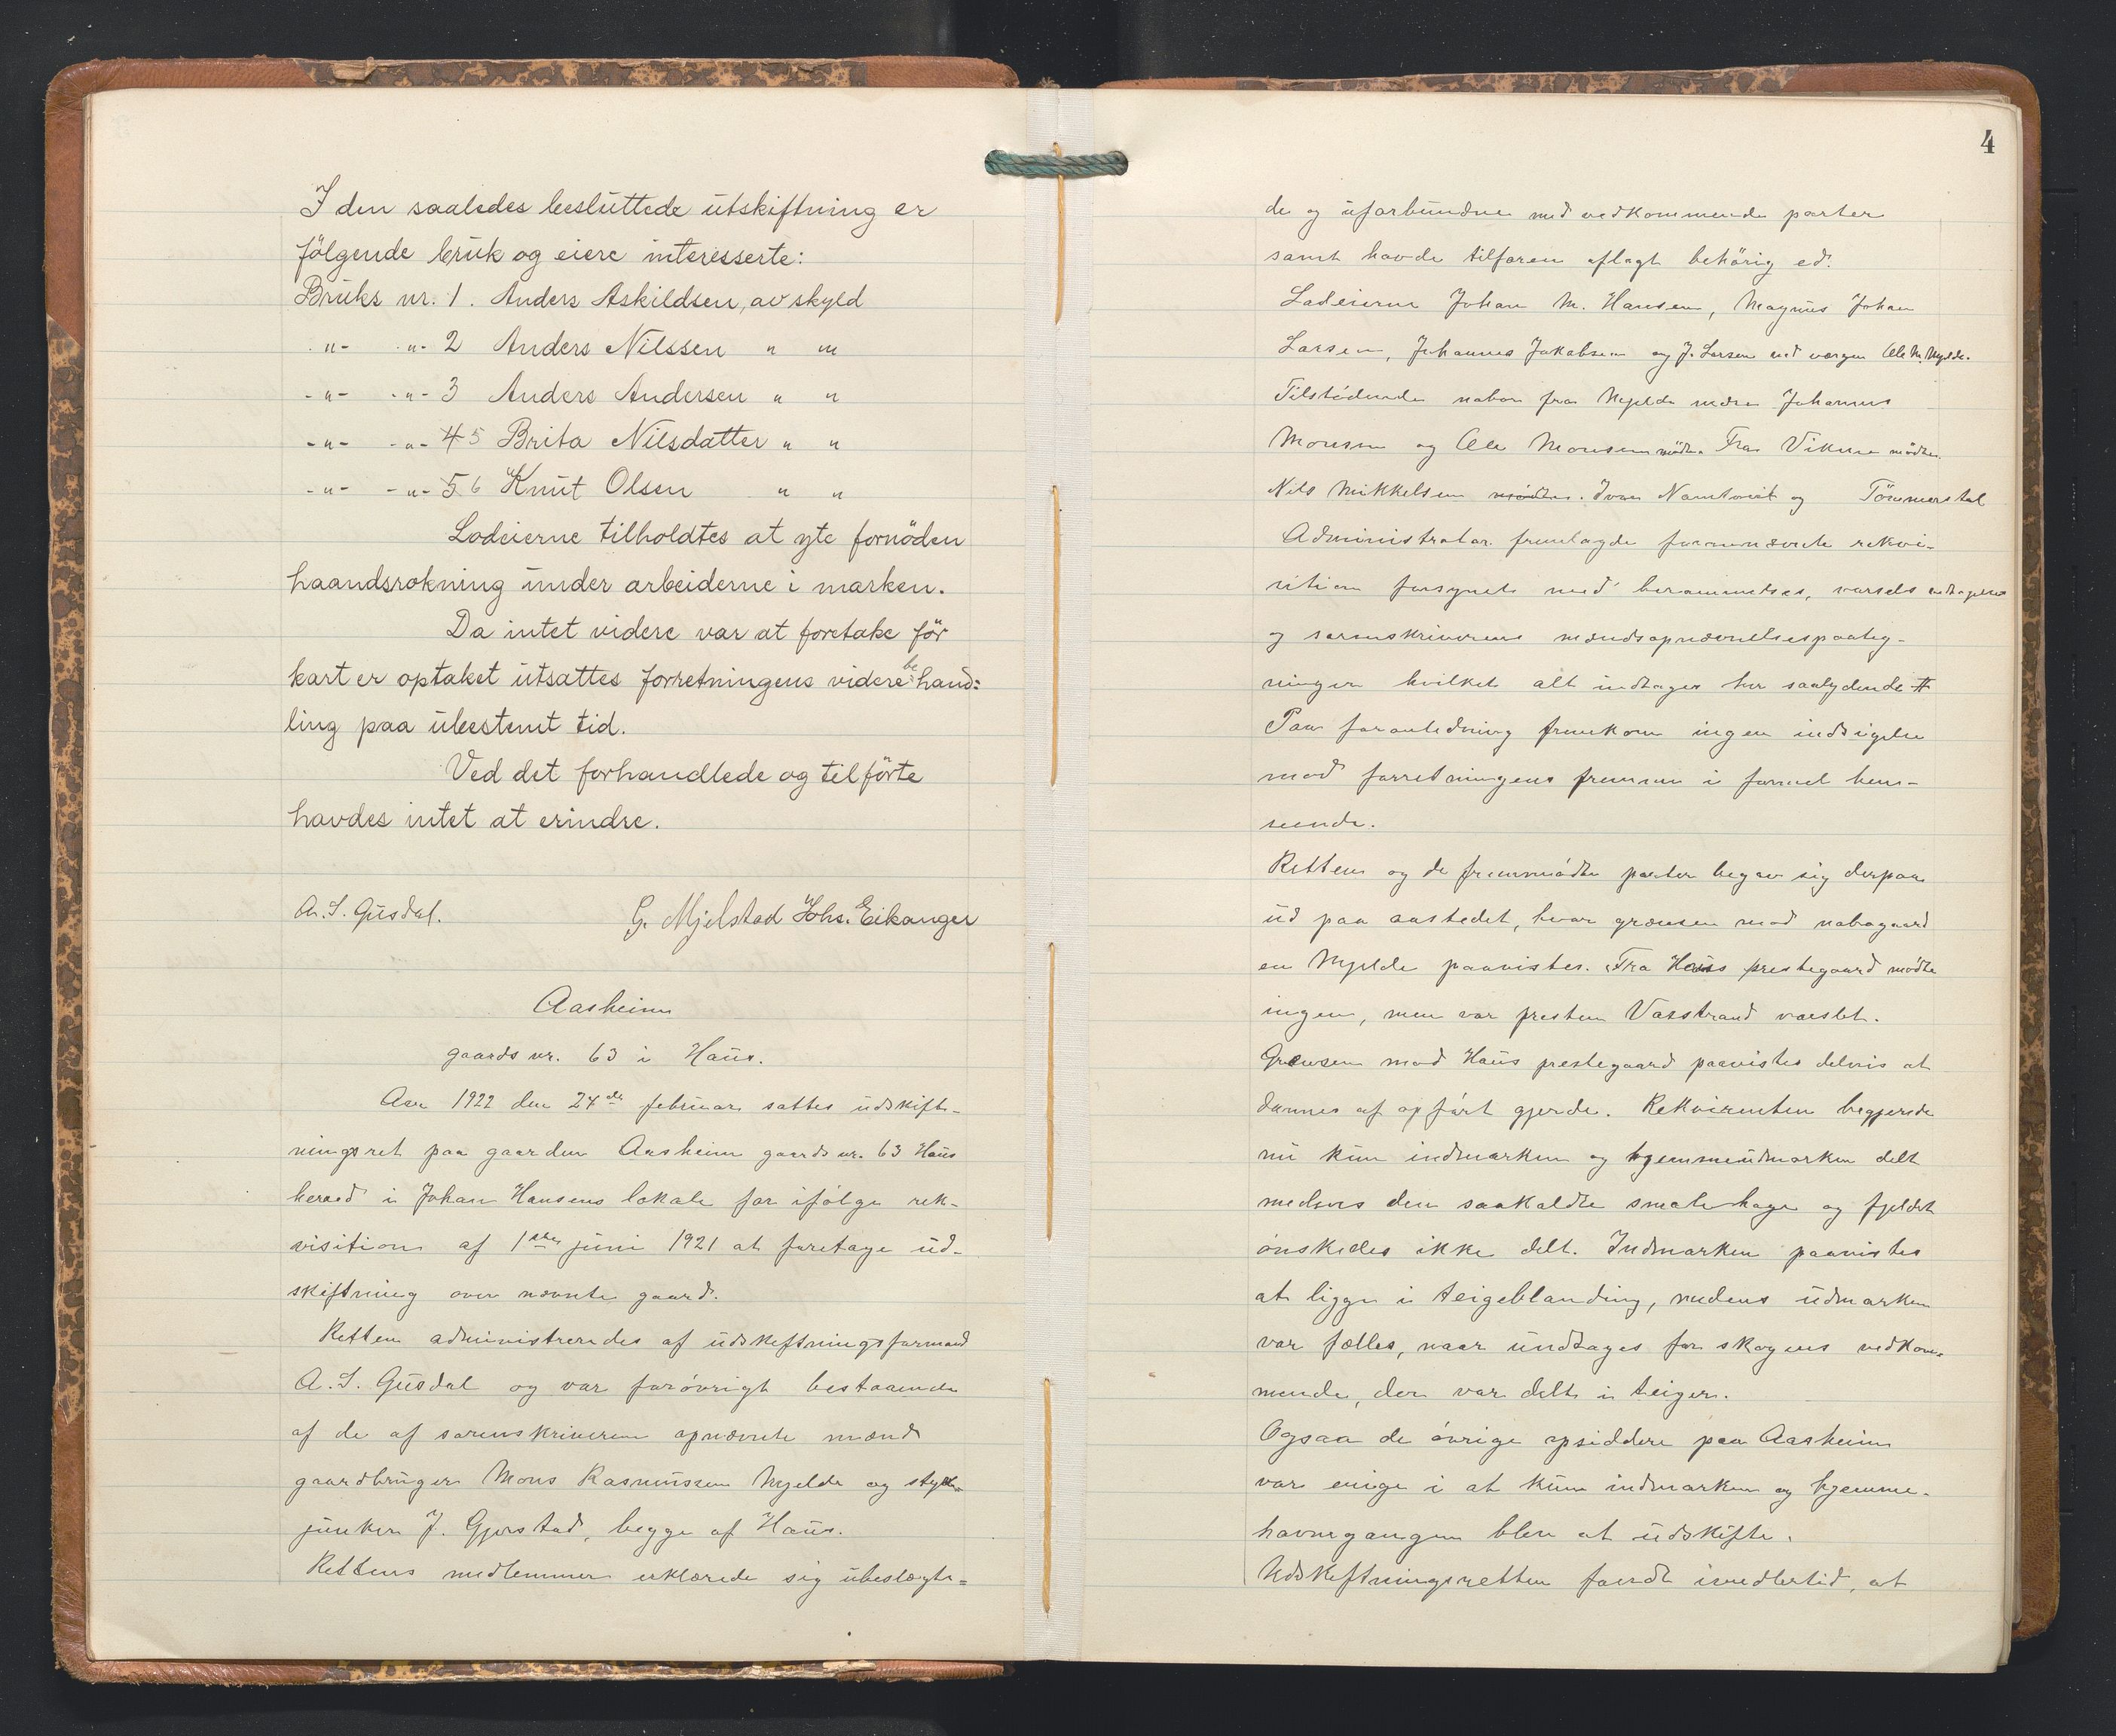 I den saaledes besluttede utskiftning er
følgende bruk og eiere interesserte:
Bruks nr. 1. Anders Askildsen, av skyld
-"- -"- 2 Anders Nilssen " "
-"- -"- 3 Anders Andersen " "
-"- -"- 4 5 Brita Nilsdatter " "
-"- -"- 5 6 Knut Olsen " "
Lodeierne tilholdtes at yte fornöden
haandsrokning under arbeiderne i marken.
Da intet videre var at foretake för
kart er optaket utsattes forretningens videre behand=
ling paa ubestemt tid.
Ved det forhandlede og tilförte
havdes intet at erindre.
A. S. Gusdal. G. Mjelstad Johs. Eikanger
Aasheim
gaards nr. 63 i Haus.
Aar 1922 den 24de februar sattes udskift-
ningsret paa gaarden Aasheim gaards nr. 63 Haus
herred i Johan Hansens lokale for ifølge rek-
visition af 1ste juni 1921 at foretage ud-
skiftning over nævnte gaard.
Retten administreredes af udskiftningsformand
A. S. Gusdal og var forøvrigt bestaaende
af de af sorenskriveren opnævnte mænd
gaardbruger Mons Rasmussen Mjelde og styk-
junker J. Gjerstad, begge af Haus.
Rettens medlemmer erklærede sig ubeslægte=
4
de og uforbundne med vedkommende parter
samt havde tilforen aflagt behörig ed.
Lodeierne Johan M. Hansen, Magnus Johan
Larsen, Johannes Jakobsen og J. Larsen ved værgen Ole M. Mjelde.
Tilstödende naboer fra Mjelde nedre Johannes
Monsen og Ole Monsen mødte. Fra Vikne mødte
Nils Mikkelsen mødte. Ivar Namtvedt og Tömmerstøl
Administrator fremlagde forannævnte rekvi-
sition forsynet med berammelses, varsels
og sorenskriverens mændsopnævnelsespaateg-
ninger hvilket alt indtages her saalydende #
Paa foranledning fremkom ingen indsigelse
mod forretningens fremme i formel hen-
seende.
Retten og de fremmødte parter begav sig derpaa
ud paa aastedet, hvor grænsen mod nabogaard
en Mjelde paavistes. Fra Haus prestegaard mødte
ingen, men var presten Vasstrand varslet.
Grænsen mod Haus prestegaard paavistes delvis at
dannes af opført gjerde. Rekvirenten begjerede
nu kun indmarken og hjemmeudmarken delt
medens den saakaldte smalehage og fjeldet
ønskedes ikke delt. Indmarken paavistes
at ligge i teigeblanding, medens udmarken
var fælles, naar undtages for skogens vedkom-
mende, der var delt i teiger.
Ogsaa de øvrige opsiddere paa Aasheim
var enige i at kun indmarken og hjemme-
havnegangen blev at udskifte.
Udskiftningsretten fandt imidlertid, at